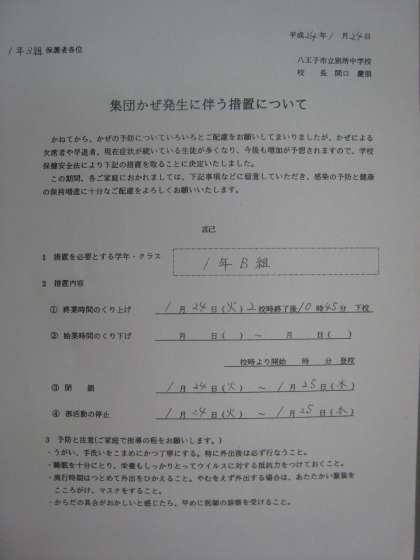 平成24年1月24日
1年B組保護者各位
八王子市立別所中学校
校 長 関口
集団かぜ発生に伴う措置について
かねてから、かぜの予防についていろいろとご配慮をお願いしてまいりましたが、かぜによる
欠席者や早退者、現在症状が続いている生徒が多くなり、今後も増加が予想されますので、学校
保健安全法により下記の措置を取ることに決定いたしました。
この期間、各ご家庭におかれましては、下記事項などに留意していただき、感染の予防と健康
の保持増進に十分なご配慮をよろしくお願いいたします。
記
1 措置を必要とする学年・クラス 1年B組
2 措置内容
① 終業時間のくり上げ 1月24日(火)2校時終了後10時45分 下校
② 始業時間のくり下げ 月 日( ) ～ 月 日( )
校時より開始 時 分 登校
③ 閉 鎖 1月24日(火) ～ 1月25日(水)
④ 部活動の停止 1月24日(火) ～ 1月25日(水)
3 予防と注意(ご家庭で指導の程をお願いします。)
・うがい、手洗いをこまめにかつ丁寧にする。特に外出後は必ず行なうこと。
・睡眠を十分にとり、栄養もしっかりとってウイルスに対する抵抗力をつけておくこと。
・流行時期はつとめて外出をひかえること。やむをえず外出する場合は、あたたかい服装を
こころがけ、マスクをすること。
・からだの具合がおかしいと感じたら、早めに医師の診察を受けること。